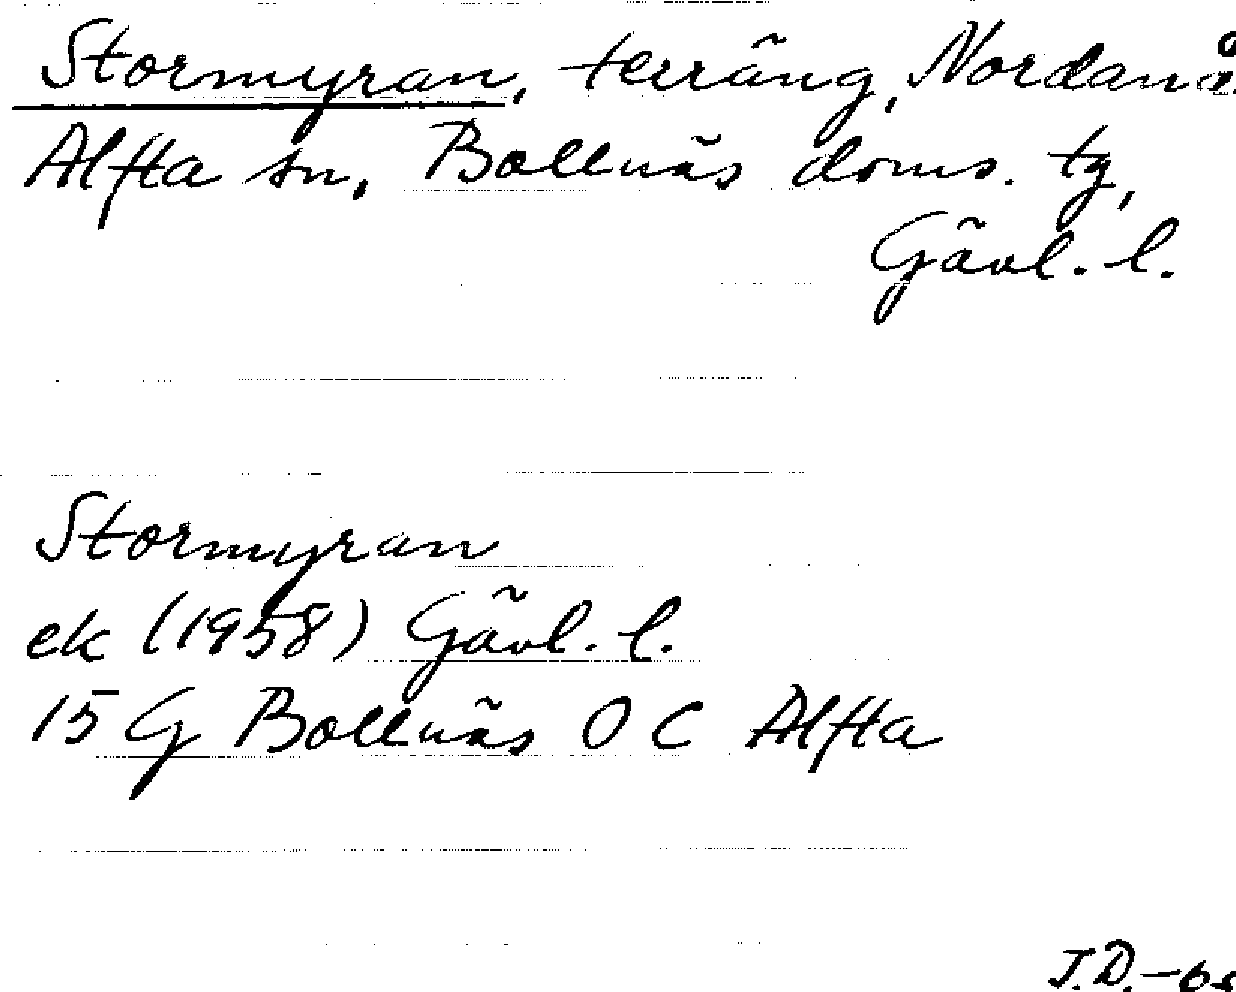 Stormyran, terräng, Nordanå
Alfta sn, Bollnäs doms. tg,
Gävl. l.
Stormyran
ek (1958) Gävl. l.
15 G Bollnäs 0 C Alfta
J.D.